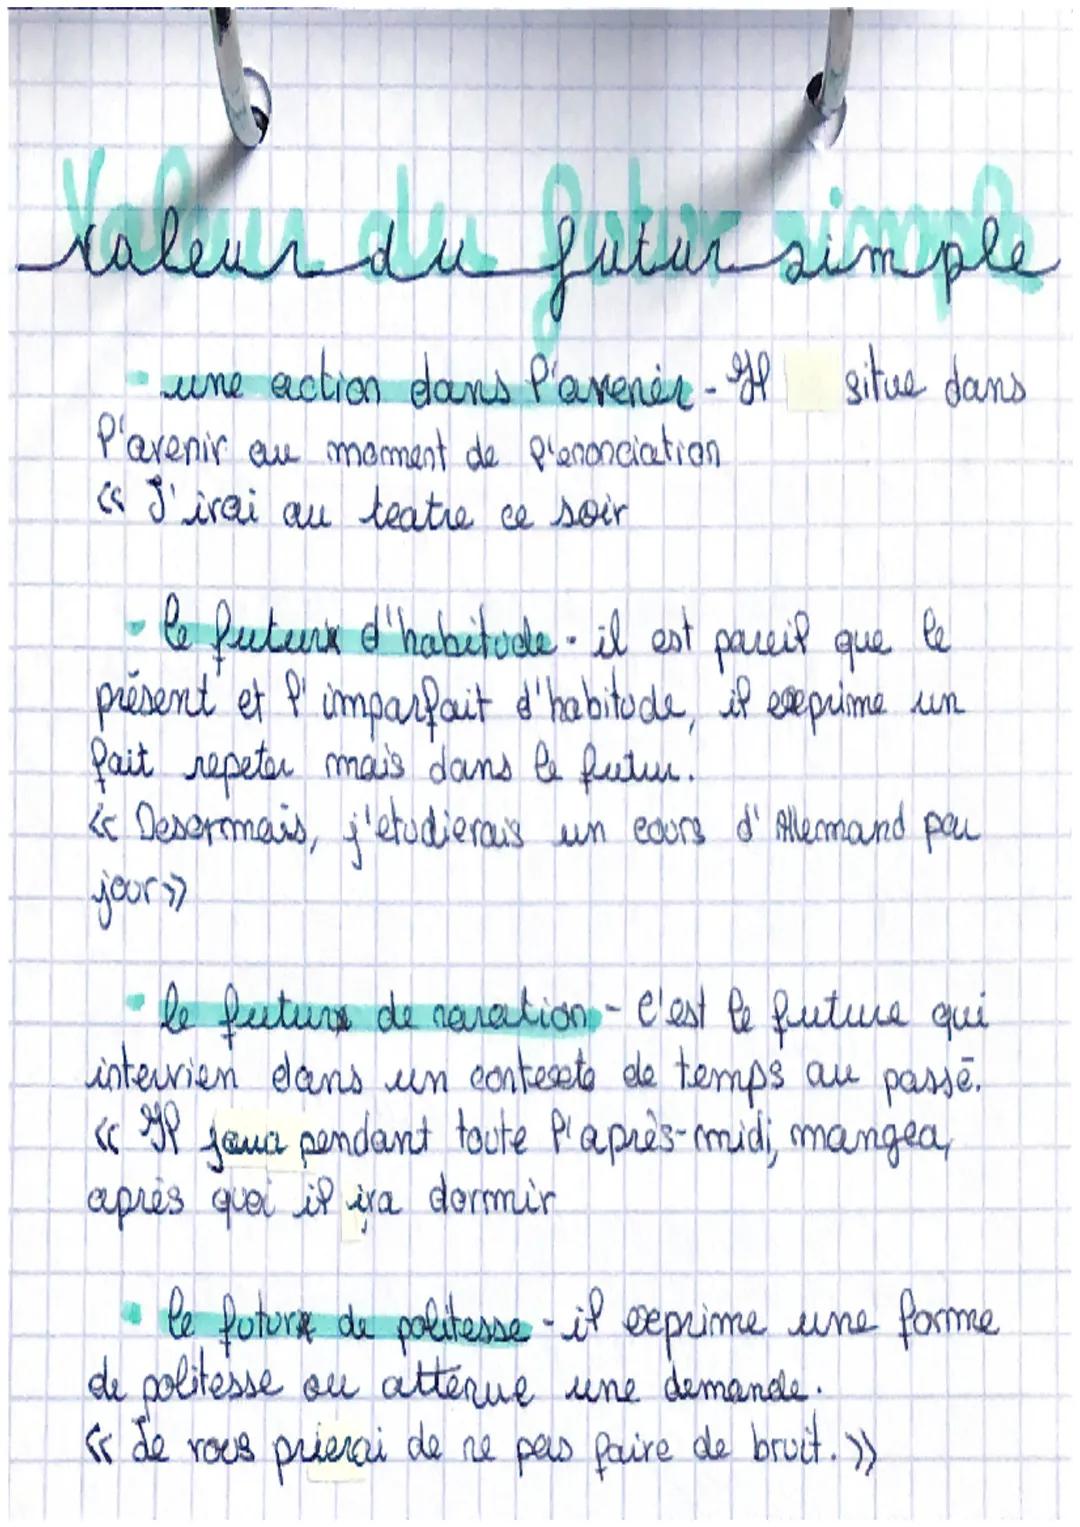 Valeur du futur simple
Valeur du futur simple
- une action dans l'avenir - Il situe dans
l'avenir au moment de l'enonciation
« J'irai au teatre ce soir
- le futur d'habitude - il est pareil que le
présent et l'imparfait d'habitude, il exprime un
fait repeter mais dans le futur.
« Desormais, j'etudierais un cours d'Allemand par
jour »
- le futur de naration - C'est le future qui
intervien dans un contexte de temps au passé.
« Il joua pendant toute l'après-midi, mangea,
après quoi il ira dormir
- le futur de politesse - il exprime une forme
de politesse ou atténue une demande.
« Je vous prierai de ne pas faire de bruit. »